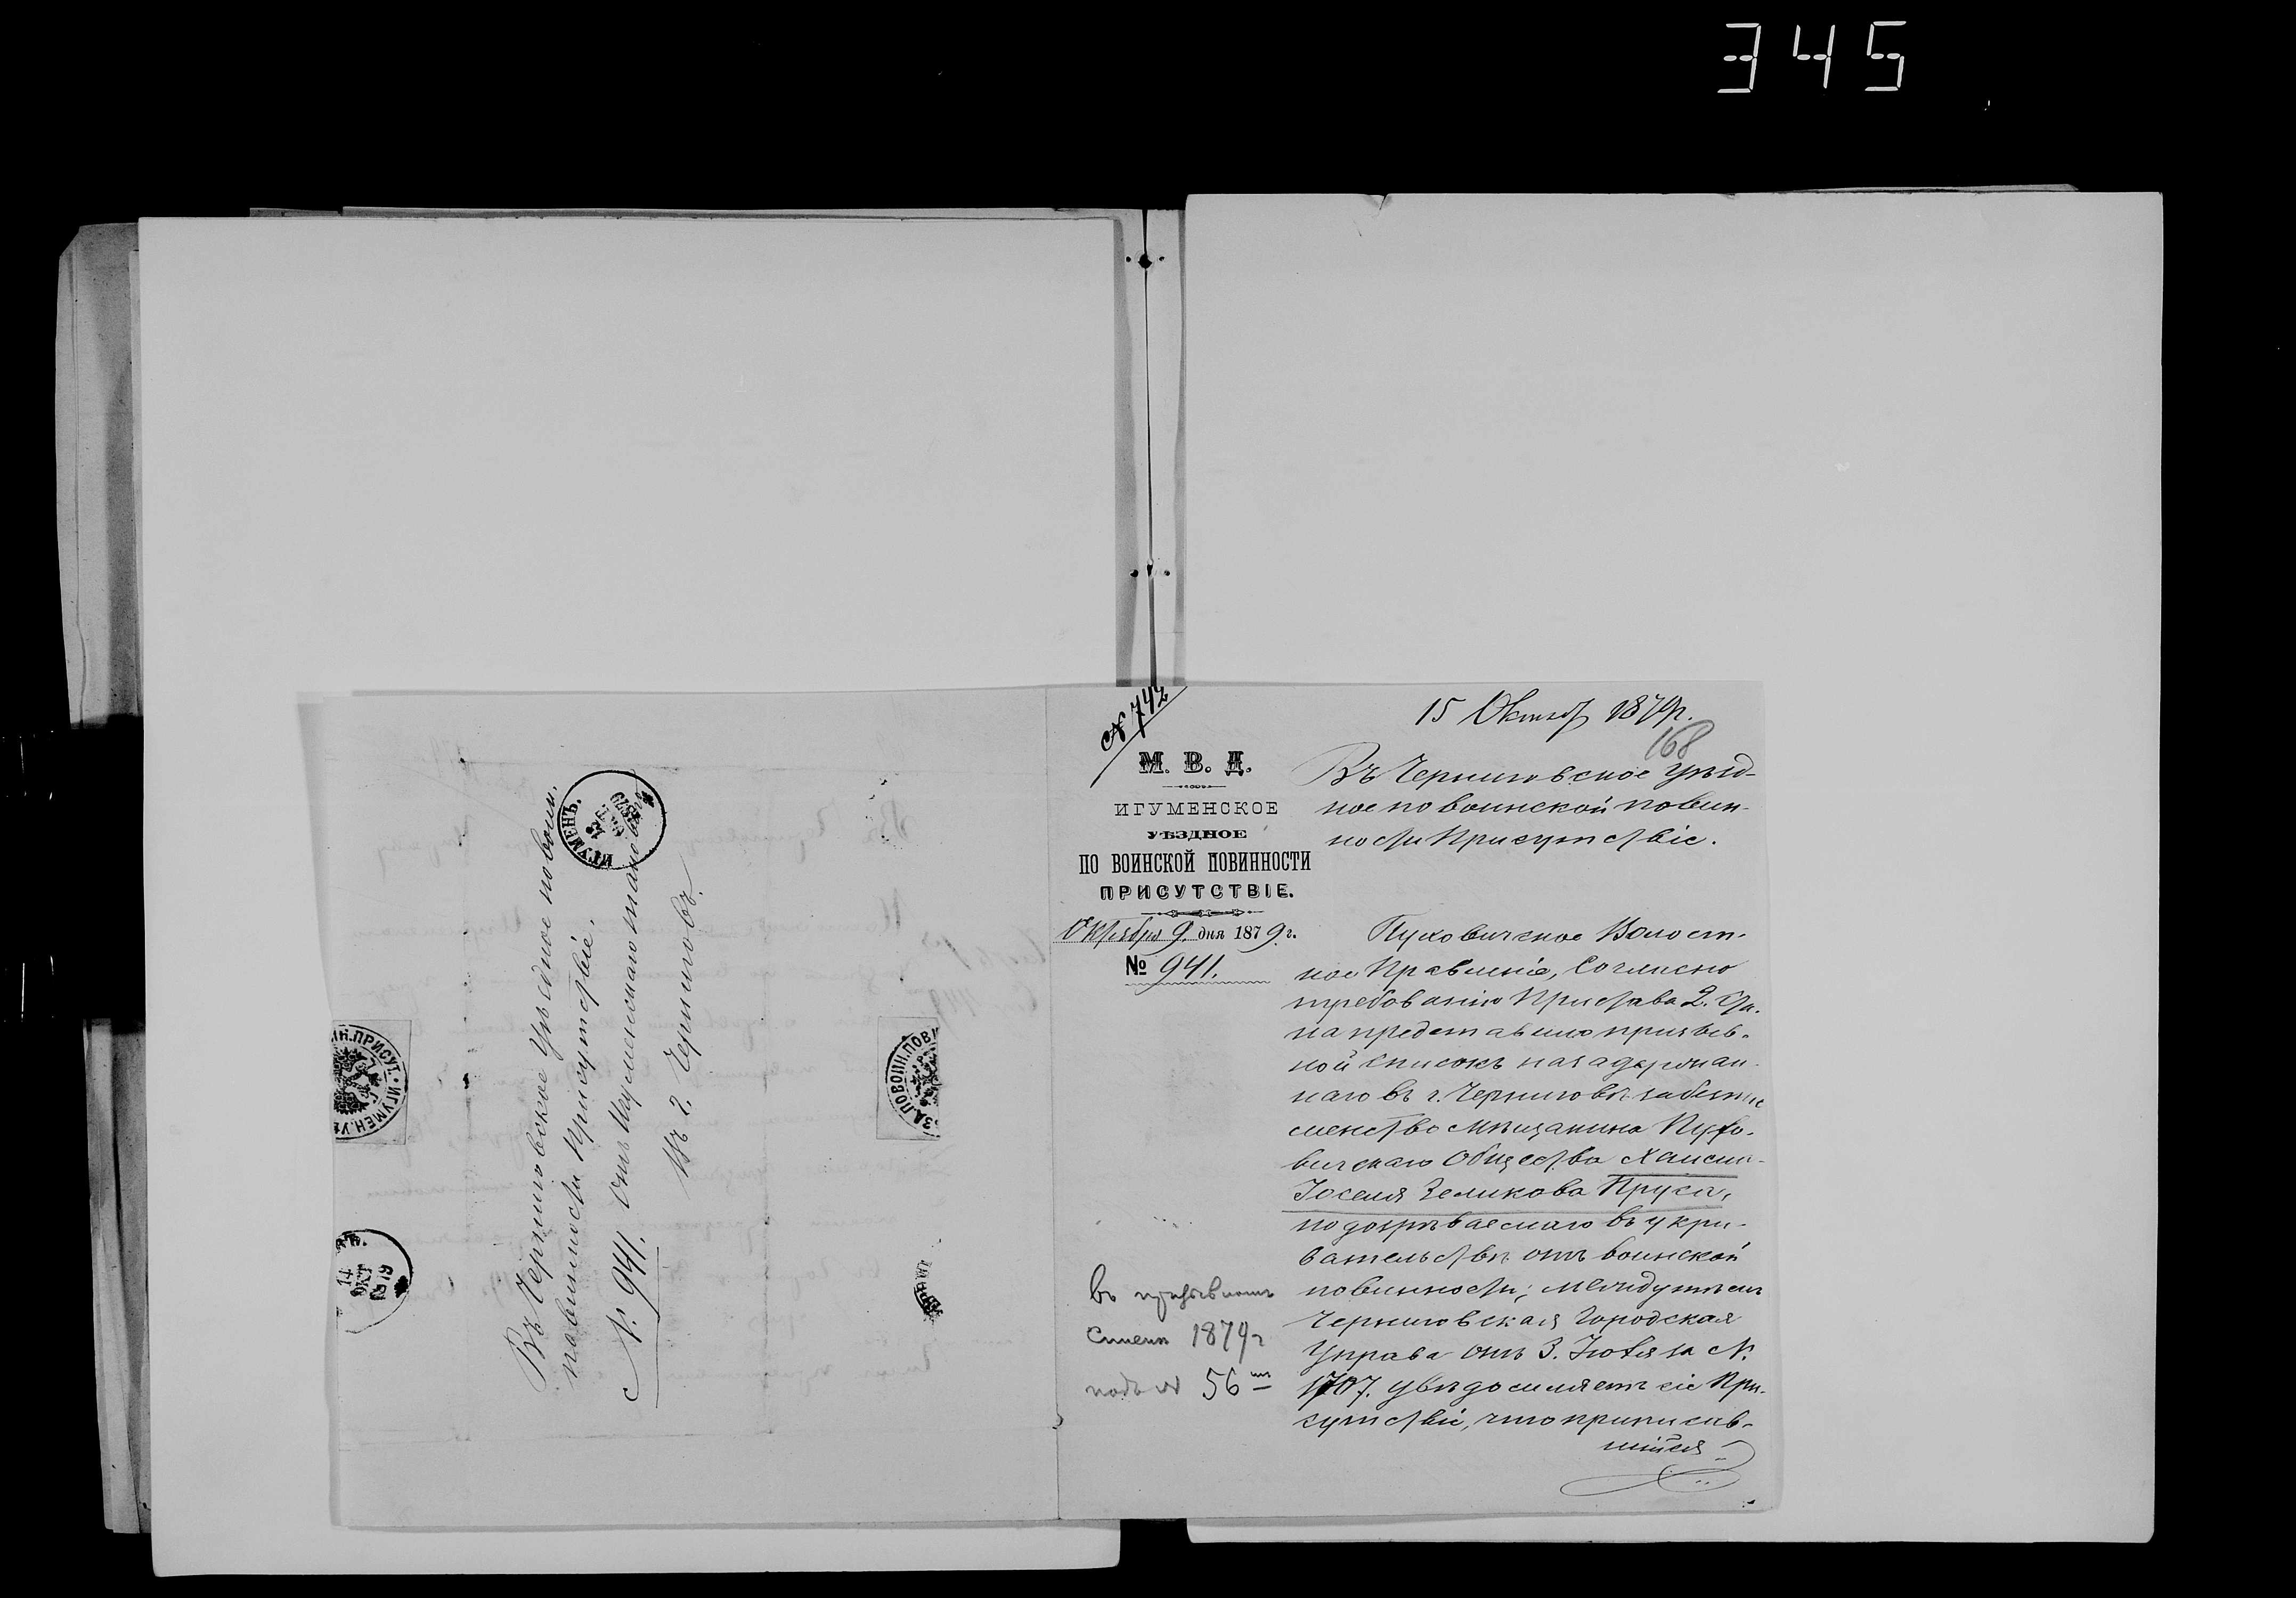 345
№ 742
15 Октяб 1879 г.
168
М. В. Д.
ИГУМЕНСКОЕ
УѢЗДНОЕ
ПО ВОИНСКОЙ ПОВИННОСТИ
ПРИСУТСТВІЕ.
Октября 9. дня 1879 г.
№ 941.
Въ Черниговское Уѣзд-
ное по воинской повин-
ности Присутствіе.
Пуховичское Волост-
ное Правленіе, согласно
требованію Пристава 2. Ст.
на представило призыв-
ной списокъ на задержан-
наго въ г. Черниговѣ
мѣщанина Пухо-
вичскаго Общества Хаима-
Іоселя Зеликова Пруса,
подозрѣваемаго въ укри-
вательствѣ отъ воинской
повинности; между тѣмъ
Черниговская Городская
Управа отъ 3. Іюля за №
1707. увѣдомляетъ сіе При-
сутствіе, что приписав-
шійся
въ призывномъ
1879 г
подъ № 56
Въ Черниговское Уѣздное по воин.
повинности Присутствіе.
№ 941. Отъ Игуменскаго таковаго
Въ г. Черниговъ.
ИГУМЕНЪ.
1879
Н.ПРИСУТ. ИГУМЕН.У
ЗД.ПО ВОИН.ПОВИ
14
ОКТ
1879